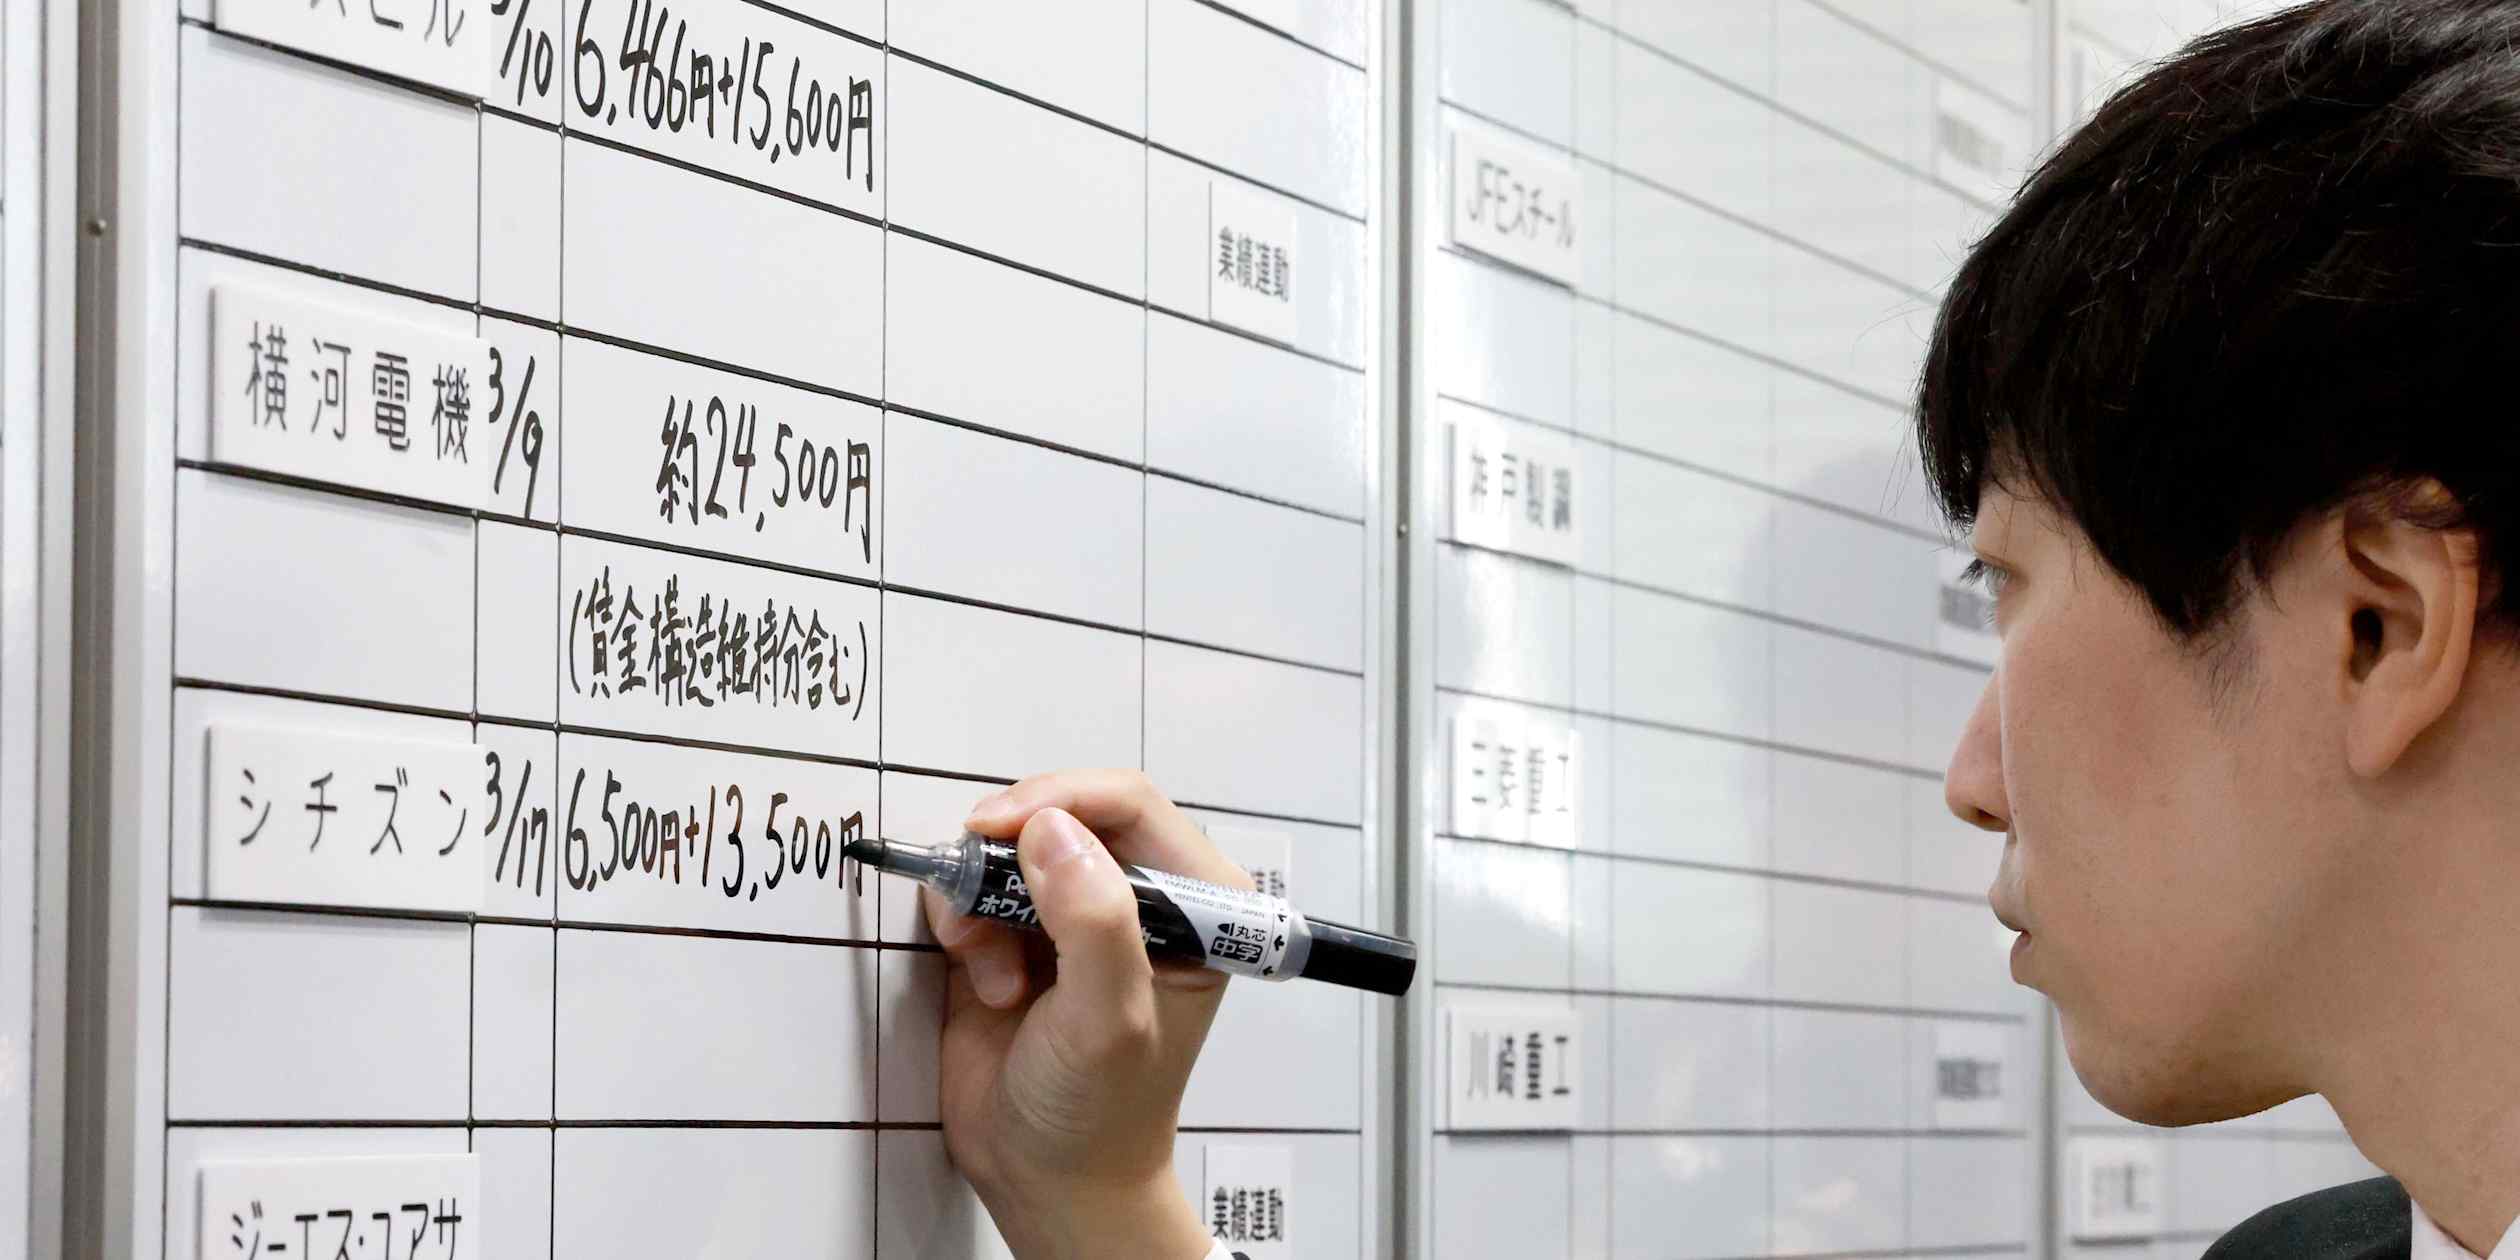 スビル 3/10 6,466円+15,600円
業績連動
横河電機 3/9 約24,500円
(賃金構造維持分含む)
シチズン 3/17 6,500円+13,500円
ジーエス・ユアサ
業績連動
JFEスチール
神戸製鋼
三菱重工
川崎重工
Pe
ホワイ
カー
丸芯
中字
PENTEL CO., LTD. JAPAN